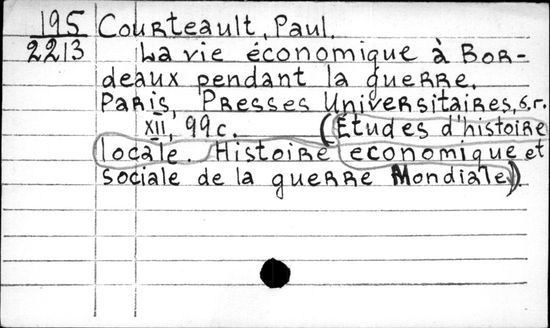 195 Courteault, Paul.
2213 La vie économique à Bor-
deaux pendant la guerre.
Paris, Presses Universitaires, s.r.
XII, 99c. (Etudes d'histoire
locale. Histoire economique et
sociale de la guerre Mondiale).